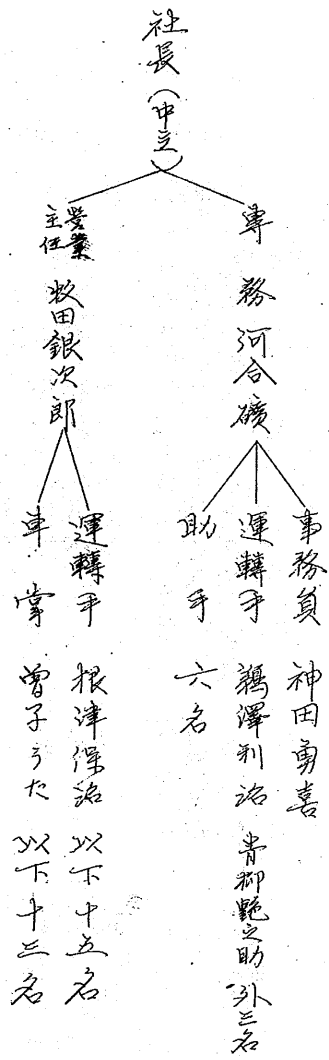 社長(中立)
專務 河合礦
事務員 神田勇喜
運轉手 鵜澤利治 青柳艶之助 外三名
助手 六名
営業主任 牧田銀次郎
運轉手 根津保治 以下十五名
車掌 曽子うた 以下十三名